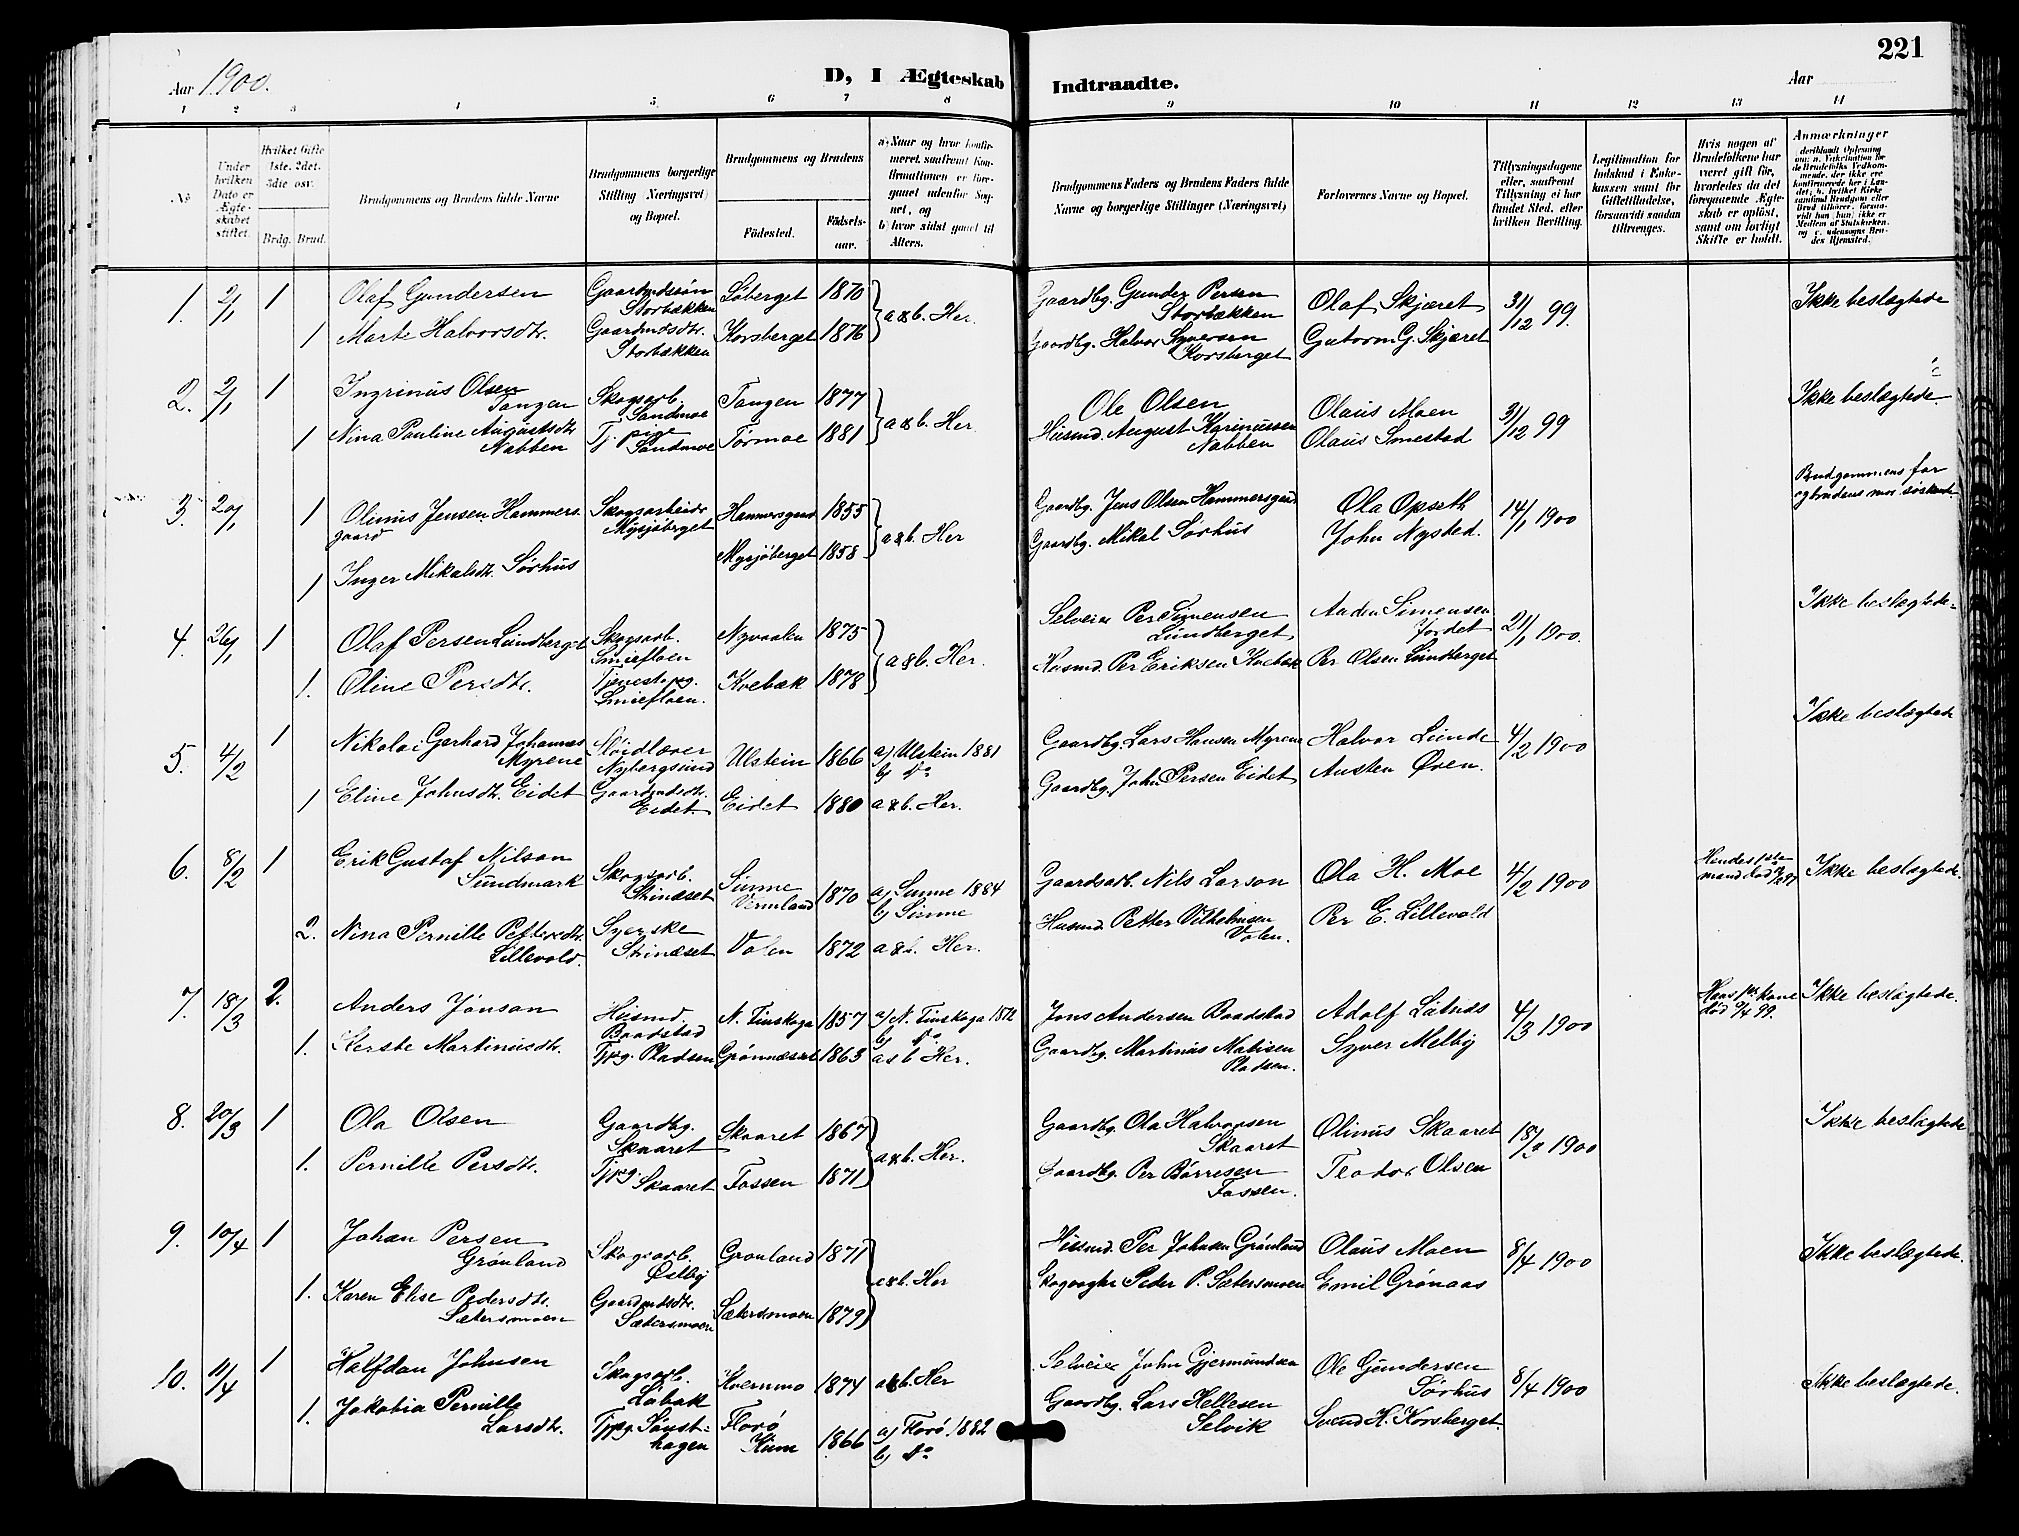 221
Aar 1900.
D, I Ægteskab Indtraadte.
Aar
1 2 3 4 5 6 7 8 9 10 11 12 13 14
No
Under hvilken Dato er Ægteskabet stiftet.
Hvilket Gifte 1ste. 2det. 3die osv.
Brdg. Brud.
Brudgommens og Brudens fulde Navne
Brudgommens borgerlige Stilling (Næringsvei) og Bopæl.
Brudgommens og Brudens
Fødested.
Fødselsaar.
a) Naar og hvor konfirmeret, saafremt Konfirmationen er foregaaet udenfor Sognet, og
b) hvor sidst gaaet til Alters.
Brudgommens Faders og Brudens Faders fulde Navne og borgerlige Stillinger (Næringsvei)
Forlovernes Navne og Bopæl.
Tillysningsdagene eller, saafremt Tillysning ei har fundet Sted, efter hvilken Bevilling.
Legitimation for Indskud i Enkekassen samt for Giftetilladelse, forsaavidt saadan tiltrænges.
Hvis nogen af Brudefolkene har været gift før, hvorledes da det foregaaende Ægteskab er opløst, samt om lovligt Skifte er holdt.
Anmærkninger
1. 2/1 1 Olaf Gundersen Gaardmdssøn Storbækken Løberget 1870 a & b. Her. Gaardbg. Gunder Persen Storbækken Olaf Skjæret 31/12 99. Ikke beslægtede
1 Marte Halvorsdtr. Gaardmdsdtr. Storbækken Korsberget 1876 Gaardbg. Halvor Syversen Korsberget Gutorm G. Skjæret
2. 2/1 1 Ingrinus Olsen Tangen Skogsarb. Sandmoe Tangen 1877 a & b. Her. Ole Olsen Olaus Moen 31/12 99 Ikke beslægtede.
1 Nina Pauline Augustsdtr. Nabben Tj. pige Sandmoe Tørmoe 1881 Husmd. August Nabben Olaus Smestad
3. 20/1 1 Olinus Jensen Hammersgaard Skogsarbeider Mysjøberget Hammersgaard 1855 a & b. Her Gaardbg. Jens Olsen Hammersgaard Ola Opseth 14/1 1900 Brudgommens far og brudens mor søskende
1 Inger Mikalsdtr. Sørhus Mysjøberget 1858 Gaardbg. Mikal Sørhus John Nysted.
4. 26/1 1 Olaf Persen Lundberget Skogsarb. Smiefloen Nyvaalen 1875 a & b. Her. Selveier Per Simensen Lundberget Aaden Simensen Jordet 21/1 1900. Ikke beslægtede
1. Oline Persdtr. Tjenestepg. Smiefloen. Kvebæk 1878 Husmd. Per Eriksen Kvebæk Per Olsen Lundberget
5. 4/2 1 Nikolai Gerhard Johannes Myrene Sløidlærer Nybergsund Ulstein 1866 a) Ulstein 1881 b) Do Gaardbg. Lars Hansen Myrene Halvor Lunde 4/2 1900 Ikke beslægtede
1 Eline Johnsdtr. Eidet Gaardmdsdtr. Eidet. Eidet 1880 a & b. Her. Gaardbg. John Persen Eidet Austen Øren.
6. 8/2 1 Erik Gustaf Nilson Sundmark Skogsarb. Strinæset Sunne Vermland 1870 a) Sunne 1884 b) Sunne Gaardsarb. Nils Larson Ola H. Moe 4/2 1900 Hendes 1ste mand død Ikke beslægtede.
2. Nina Pernille Pettersdtr. Lillevold. Syerske Strinæset Volen 1872 a & b. Her. Husmd. Petter Vilhelmsen Volen. Per E. Lillevold
7. 18/3 2. Anders Jonson Husmd. Baadstad N. Finskoga 1857 a) N. Finskoga 1872 b) Do Jons Andersen Baadstad Adolf 4/3 1900 Hans 1ste kone død 9/4 99. Ikke beslægtede.
1. Kerste Martinusdtr. Tjpg. Pladsen Grønnæset 1863 a & b Her. Gaardbg. Martinus Matisen Pladsen. Syver Melby
8. 20/3 1 Ola Olsen Gaardbg. Skaaret Skaaret 1867 a & b. Her. Gaardbg. Ola Halvorsen Skaaret Olinus Skaaret 18/3 1900 Ikke beslægtede
1. Pernille Persdtr. Tjpg Skaaret Fossen 1871 Gaardbg. Per Børresen Fossen. Teodor Olsen
9. 10/4 1 Johan Persen Grønland Skogsarb. Østby Grønland 1871 a & b. Her Husmd. Per Johnsen Grønland Olaus Moen 8/4 1900 Ikke beslægtede.
1. Karen Elise Pedersdtr. Sætersmoen Gaardmdsdtr. Sætersmoen Sætersmoen 1879 Skogvogter Peder P. Sætersmoen Emil Grønaas
10. 11/4 1 Halfdan Johnsen Skogsarb. Løbak Kvernmo 1874 a & b. Her Selveier John Gjermundsen Ole Gundersen Sørhus 8/4 1900 Ikke beslægtede.
1. Jakobia Pernille Larsdtr. Tjpg. Sønsthagen Florø Kinn 1866 a) Florø 1882 b) Do Gaardbg. Lars Hellesen Selvik Svend H. Korsberget.